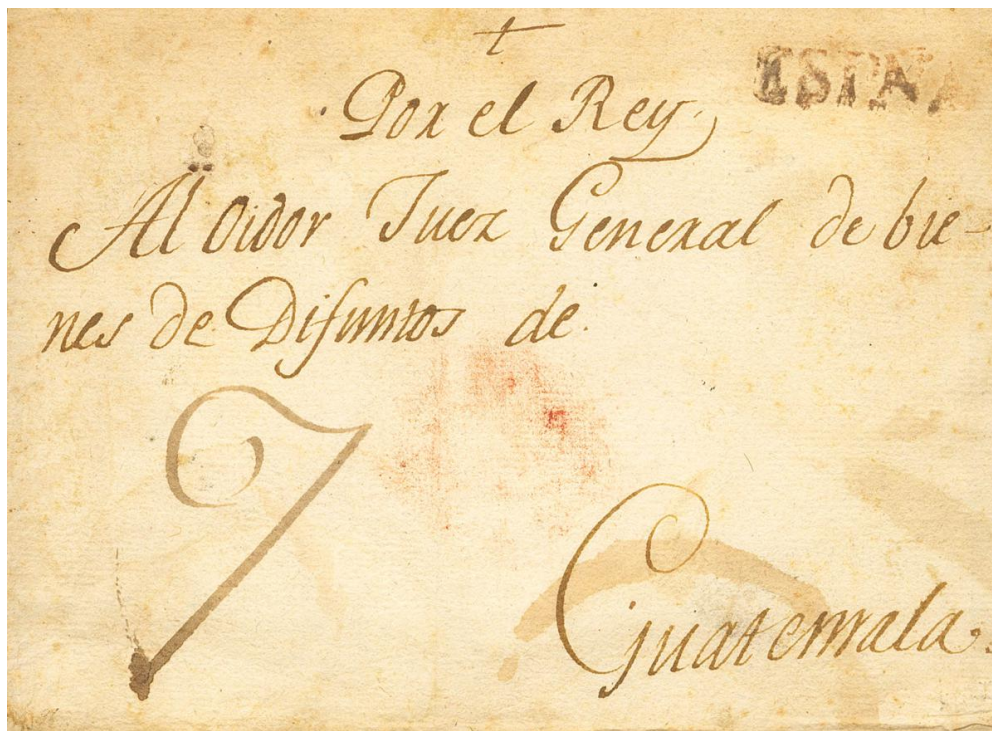 ESPAÑA
Por el Rey.
Al Oidor Juez General de bie-
nes de Difuntos de
7
Guatemala.